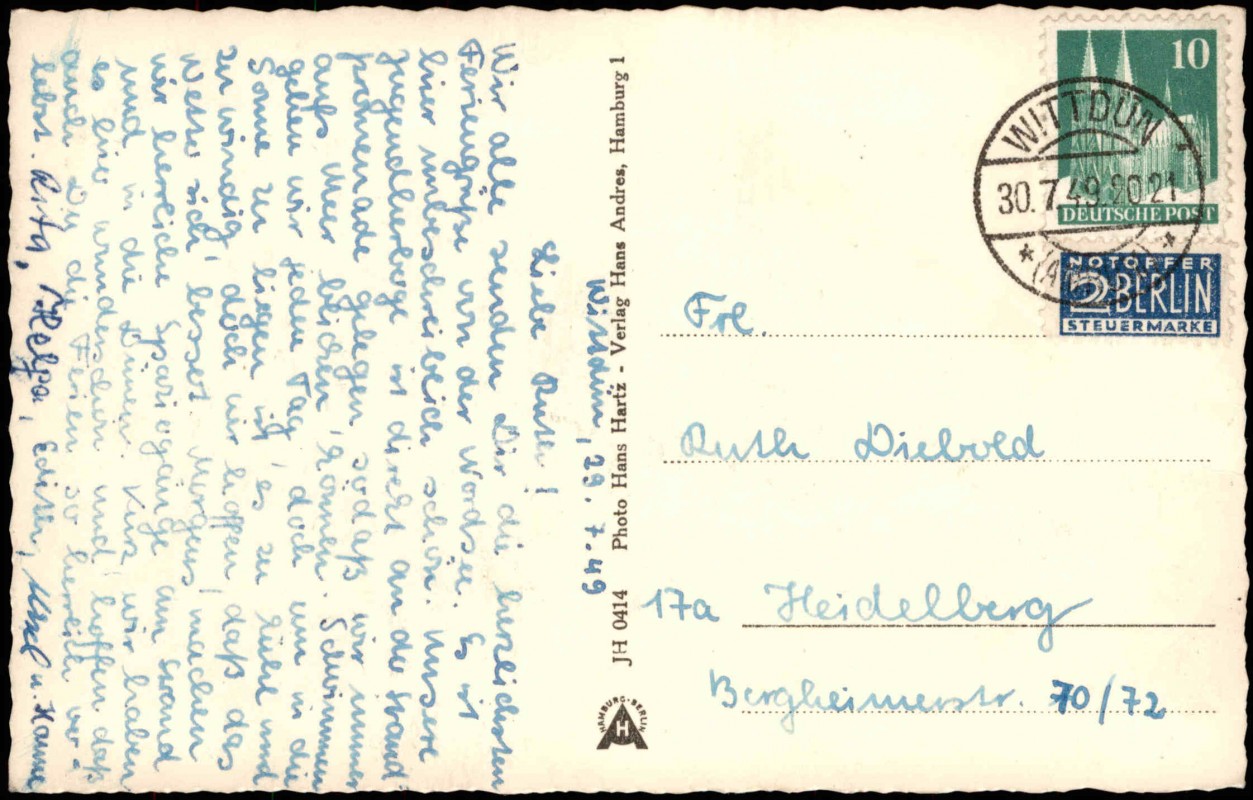 Wittdün, 29. 7. 49
Liebe Ruth!
Wir alle senden Dir die herzlichsten
Feriengrüße von der Nordsee. Es ist
hier unbeschreiblich schön. Unsere
Jugendherberge ist direkt an der Strand-
promenade gelegen, sodaß wir immer
aufs Meer blicken können. Schwimmen
gehen wir jeden Tag, doch um in die
Sonne zu liegen ist es zu kühl und
zu windig, doch wir hoffen, daß das
Wetter sich bessert. Morgens machen
wir herrliche Spaziergänge am Strand
und in die Dünen. Kurz, wir haben
es hier wunderschön und hoffen daß
auch Du die Ferien so herrlich ver-
lebst. Rita, Helga, Edith, u. Hanne
JH 0414 Photo Hans Hartz - Verlag Hans Andres, Hamburg 1
HAMBURG-BERLIN
AH
10
DEUTSCHE POST
WITTDÜN
30.7.49.20-21
NOTOPFER
2 BERLIN
STEUERMARKE
Frl.
Ruth Diebold
17a Heidelberg
Bergheimerstr. 70/72